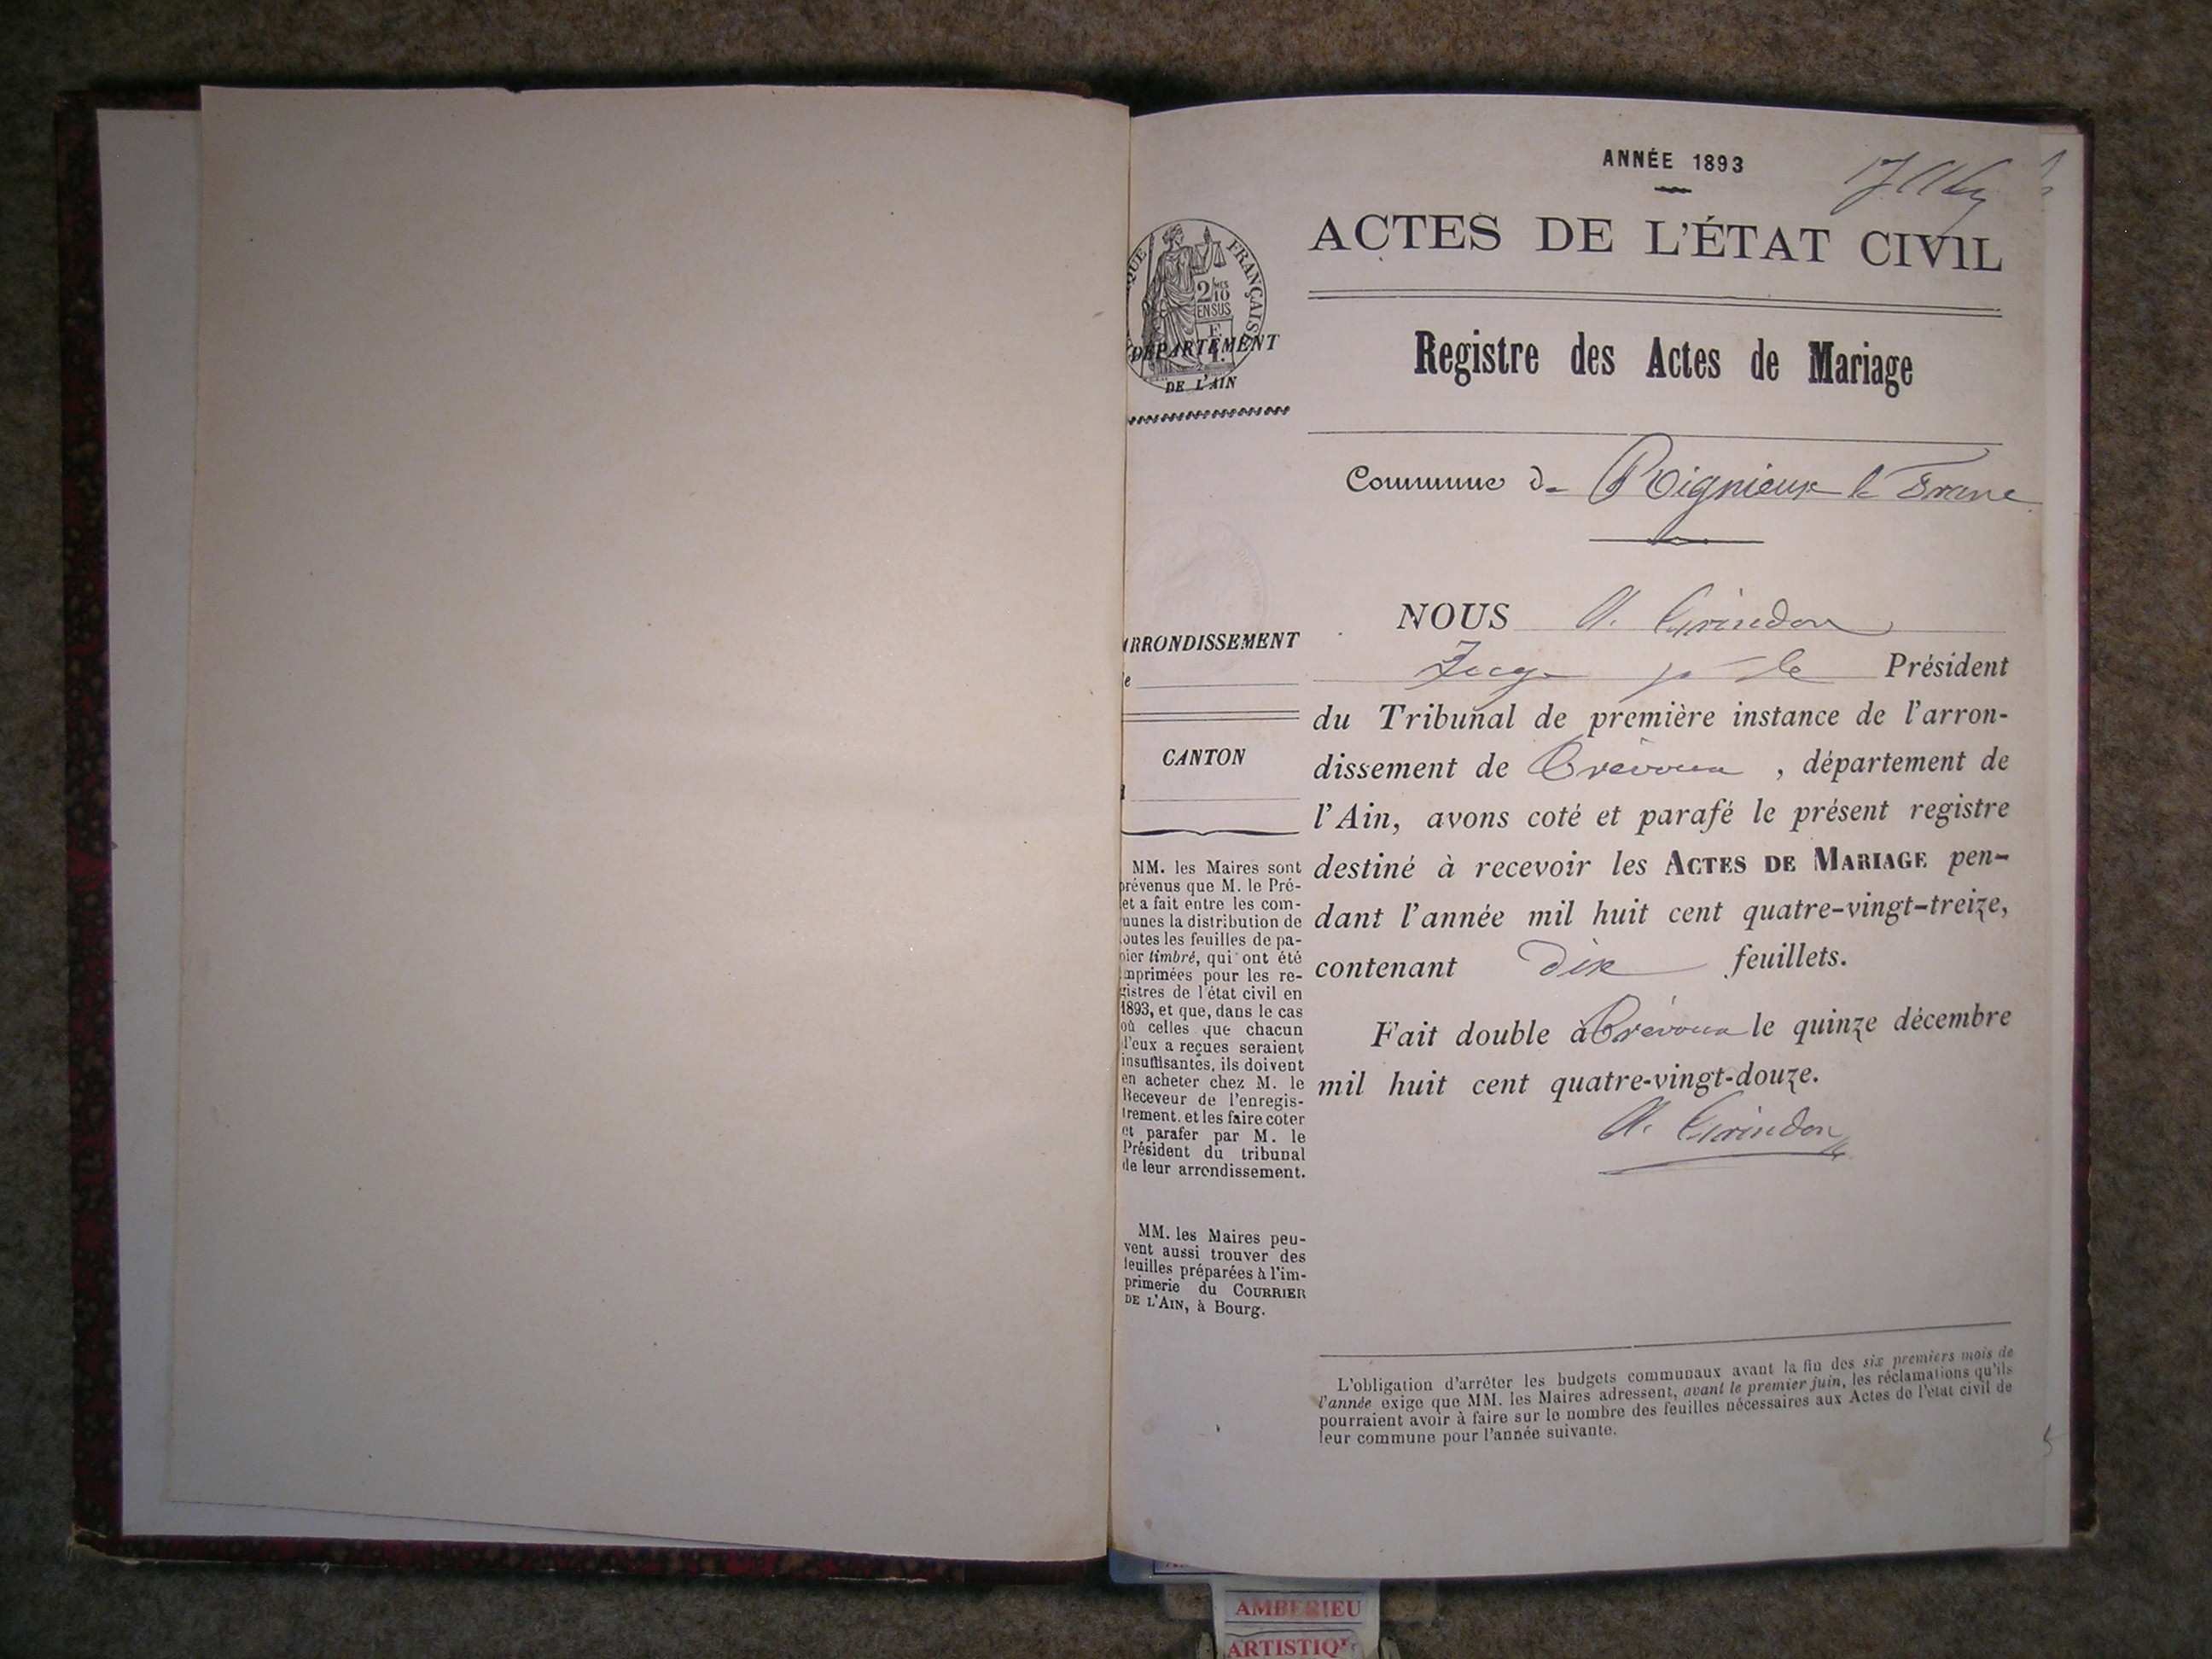 ANNÉE 1893
ACTES DE L'ÉTAT CIVIL
Registre des Actes de Mariage
Commune de Rignieux le Franc
NOUS A. Grindon
Juge pr le Président
du Tribunal de première instance de l'arron-
dissement de Trévoux, département de
l'Ain, avons coté et parafé le présent registre
destiné à recevoir les ACTES DE MARIAGE pen-
dant l'année mil huit cent quatre-vingt-treize,
contenant dix feuillets.
Fait double à Trévoux le quinze décembre
mil huit cent quatre-vingt-douze.
A. Grindon
L'obligation d'arrêter les budgets communaux avant la fin des six premiers mois de
l'année exige que MM. les Maires adressent, avant le premier juin, les réclamations qu'ils
pourraient avoir à faire sur le nombre des feuilles nécessaires aux Actes de l'état civil de
leur commune pour l'année suivante.
QUE FRANÇAISE
2/10 MES
EN SUS
DÉPARTEMENT
DE L'AIN
ARRONDISSEMENT
e
CANTON
MM. les Maires sont
prévenus que M. le Pré-
et a fait entre les com-
munes la distribution de
toutes les feuilles de pa-
pier timbré, qui ont été
imprimées pour les re-
gistres de l'état civil en
1893, et que, dans le cas
où celles que chacun
d'eux a reçues seraient
insuffisantes, ils doivent
en acheter chez M. le
Receveur de l'enregis-
trement, et les faire coter
et parafer par M. le
Président du tribunal
de leur arrondissement.
MM. les Maires peu-
vent aussi trouver des
feuilles préparées à l'im-
primerie du COURRIER
DE L'AIN, à Bourg.
AMBERIEU
ARTISTIQ